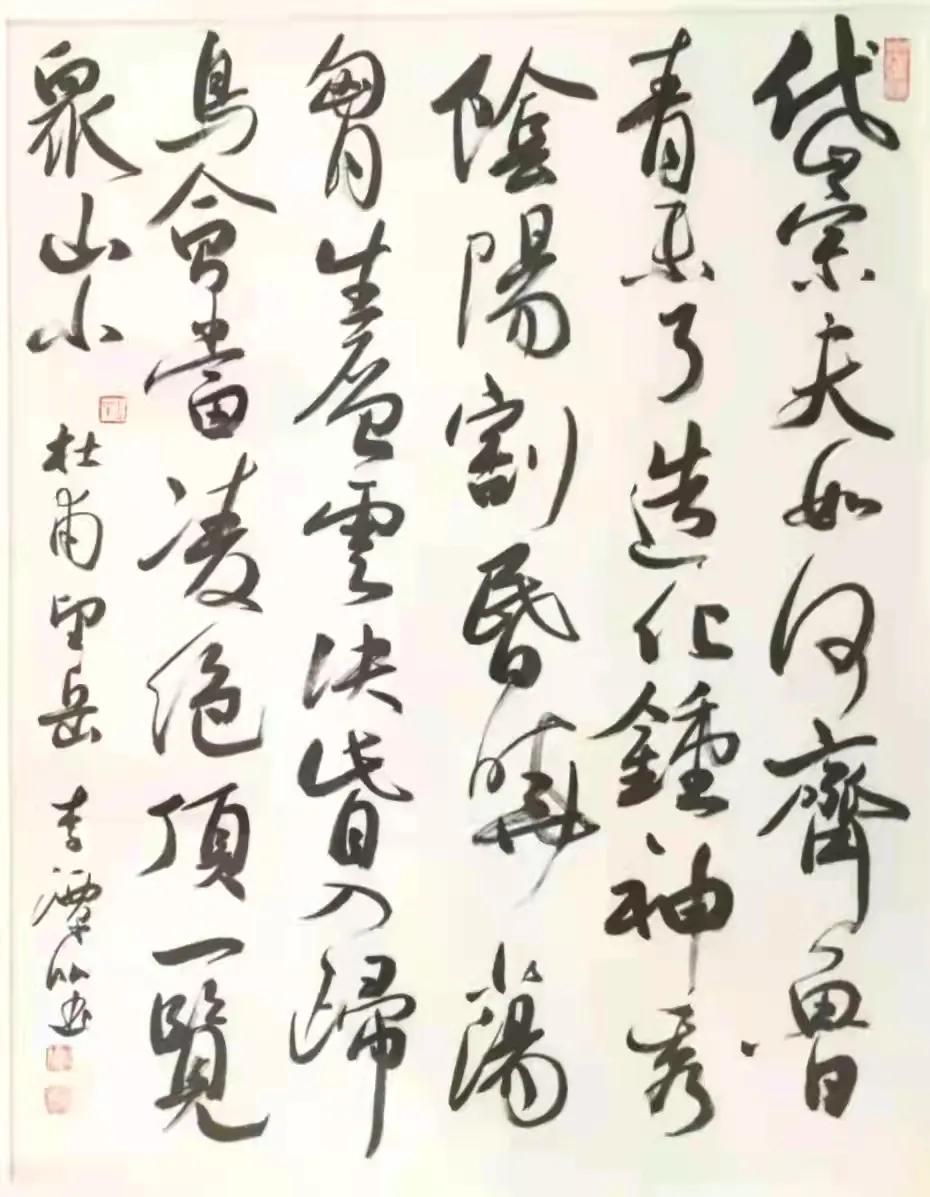 岱宗夫如何齊魯
青未了造化鍾神秀
陰陽割昏曉蕩
胷生層雲決眥入歸
鳥會當凌絕頂一覽
眾山小
杜甫望岳 李潭